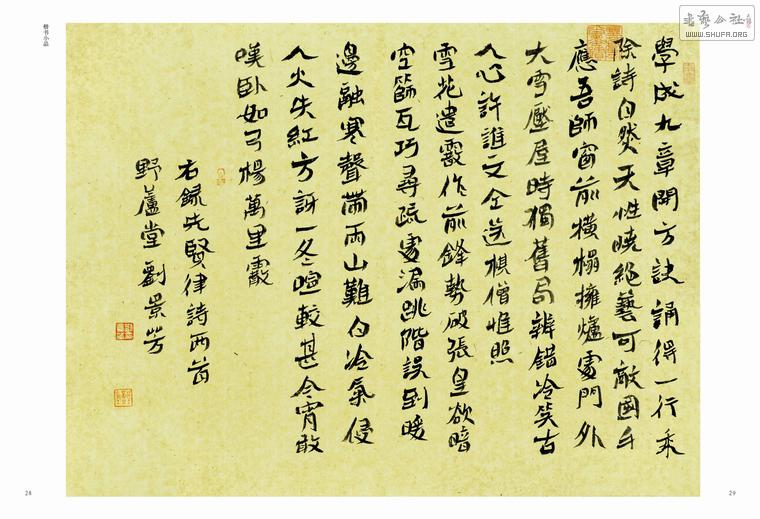 楷书小品
書藝公社
WWW.SHUFA.ORG
學成九章開方訣誦得一行乘
除詩自然天性曉絕藝可敵國手
應吾師窗前橫榻擁爐處門外
大雪壓屋時獨舊局辨錯冷笑古
人心許誰文仝送棋僧惟照
雪花遣霰作前鋒勢破張皇欲暗
空篩瓦巧尋疏處漏跳階誤到暖
邊融寒聲帶雨山難白冷氣侵
人火失紅方訝一冬暄較甚今宵敢
嘆臥如弓楊萬里霰
右録先賢律詩兩首
野蘆堂劉景芳
28
29